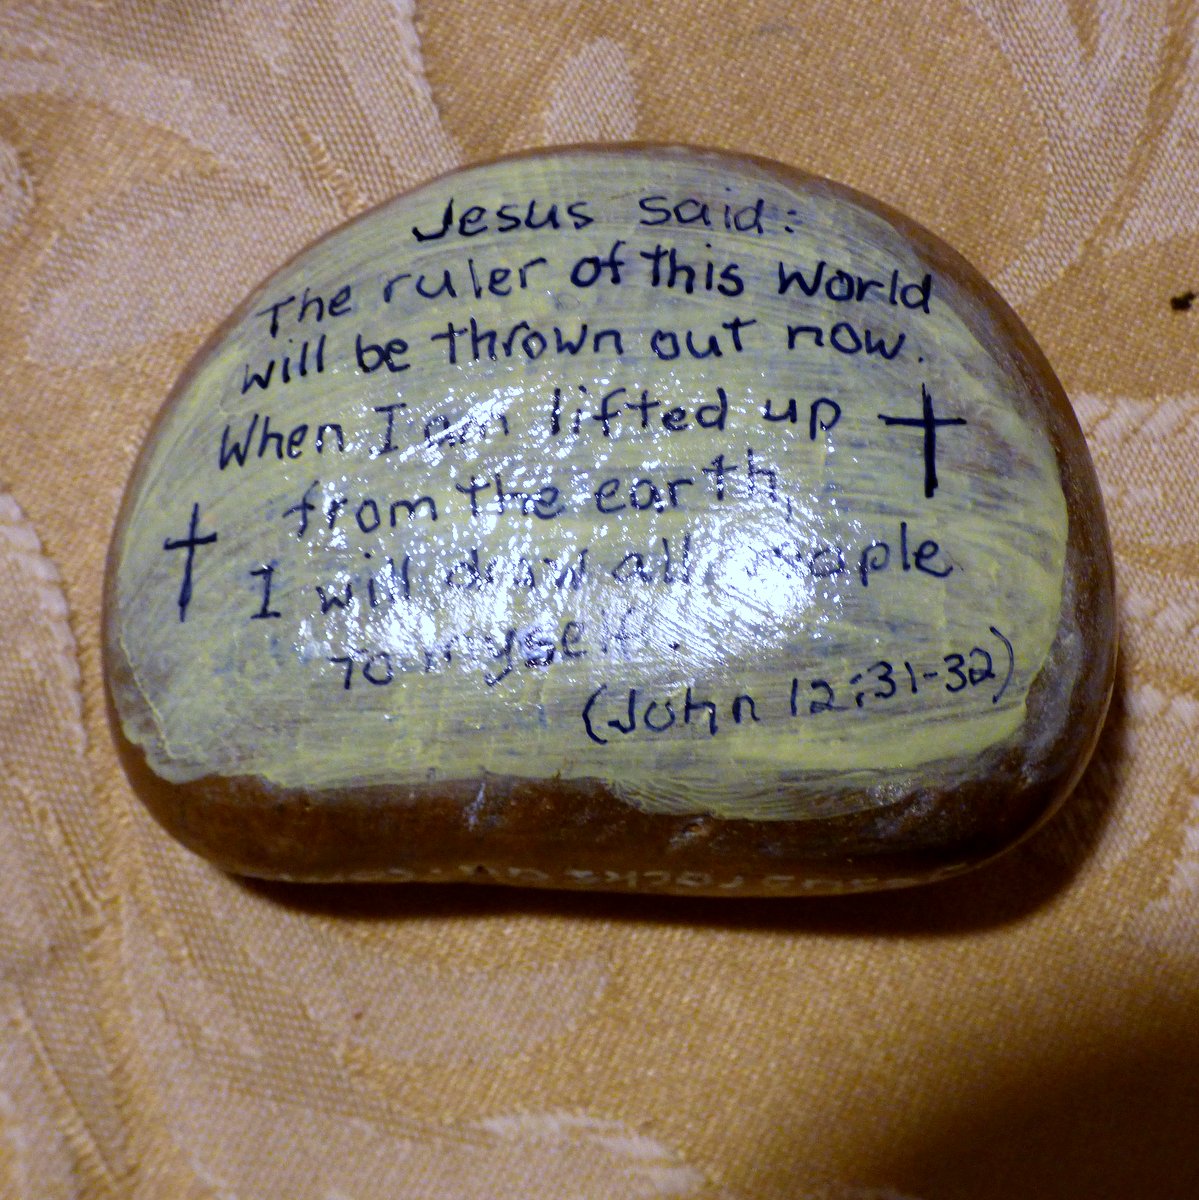 Jesus said:
The ruler of this world
will be thrown out now.
When I am lifted up
from the earth,
I will draw all people
to myself.
(John 12:31-32)
rocks